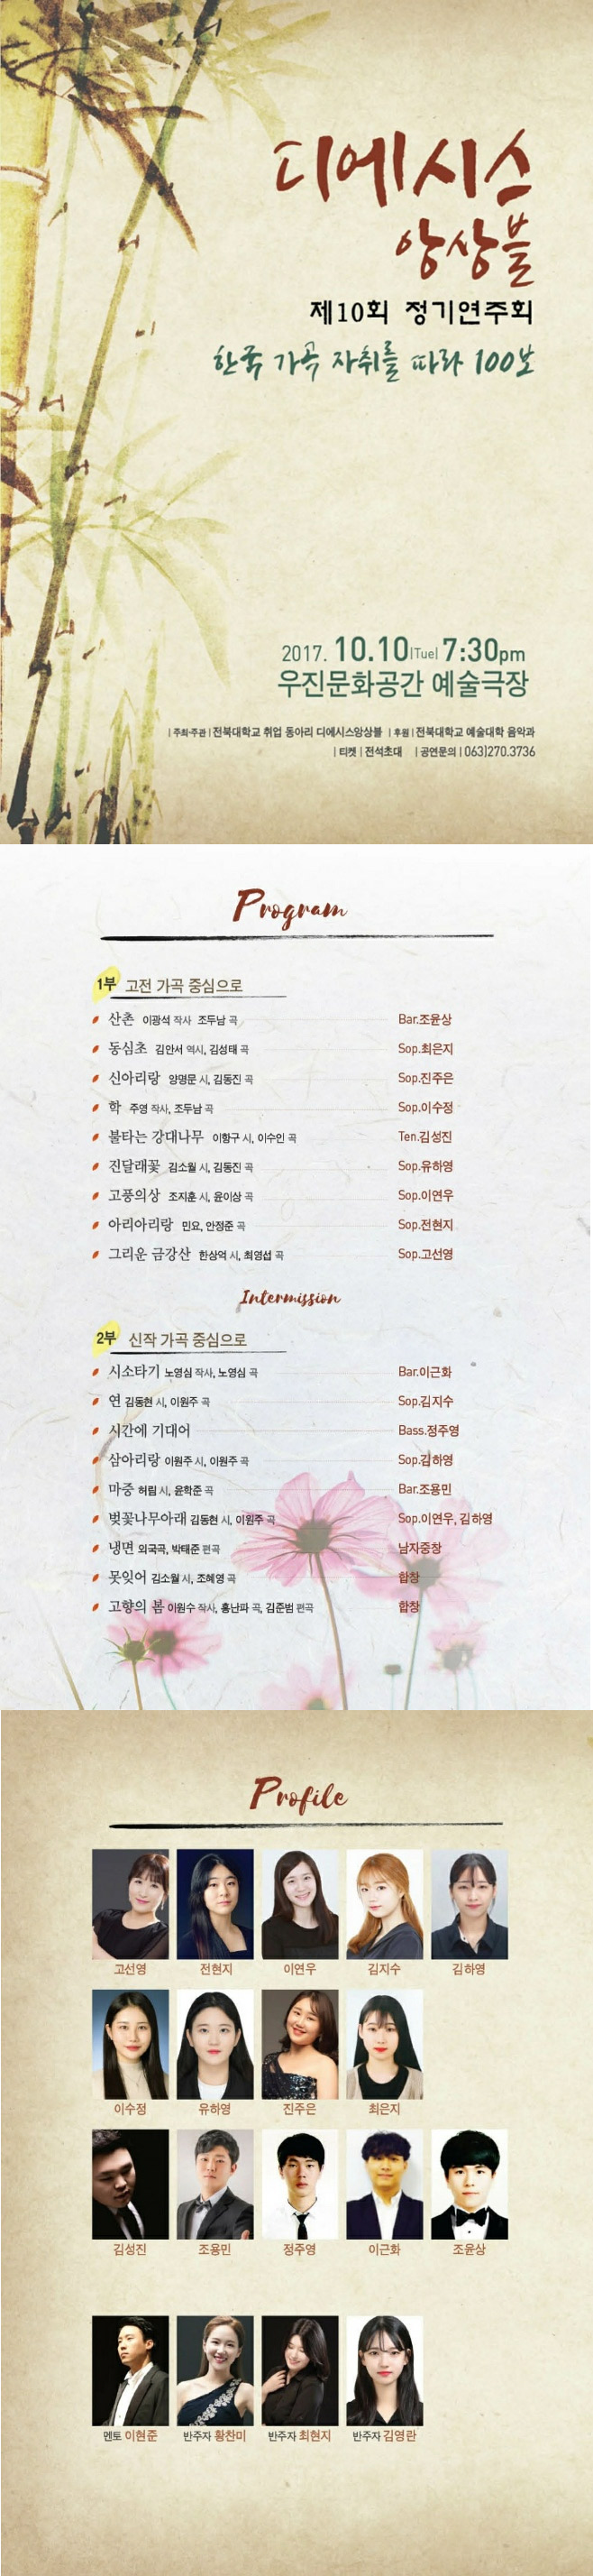 디에시스
앙상블
제10회 정기연주회
한국 가곡 자취를 따라 100보
2017. 10.10|Tue| 7:30pm
우진문화공간 예술극장
| 주최·주관 | 전북대학교 취업 동아리 디에시스앙상블 | 후원 | 전북대학교 예술대학 음악과
| 티켓 | 전석초대 | 공연문의 | 063)270.3736
Program
1부 고전 가곡 중심으로
산촌 이광석 작사 조두남 곡 Bar.조윤상
동심초 김안서 역시, 김성태 곡 Sop.최은지
신아리랑 양명문 시, 김동진 곡 Sop.진주은
학 주영 작사, 조두남 곡 Sop.이수정
불타는 강대나무 이항구 시, 이수인 곡 Ten.김성진
진달래꽃 김소월 시, 김동진 곡 Sop.유하영
고풍의상 조지훈 시, 윤이상 곡 Sop.이연우
아리아리랑 민요, 안정준 곡 Sop.전현지
그리운 금강산 한상억 시, 최영섭 곡 Sop.고선영
Intermission
2부 신작 가곡 중심으로
시소타기 노영심 작사, 노영심 곡 Bar.이근화
연 김동현 시, 이원주 곡 Sop.김지수
시간에 기대어 Bass.정주영
삼아리랑 이원주 시, 이원주 곡 Sop.김하영
마중 허림 시, 윤학준 곡 Bar.조용민
벚꽃나무아래 김동현 시, 이원주 곡 Sop.이연우, 김하영
냉면 외국곡, 박태준 편곡 남자중창
못잊어 김소월 시, 조혜영 곡 합창
고향의 봄 이원수 작사, 홍난파 곡, 김준범 편곡 합창
Profile
고선영 전현지 이연우 김지수 김하영
이수정 유하영 진주은 최은지
김성진 조용민 정주영 이근화 조윤상
멘토 이현준 반주자 황찬미 반주자 최현지 반주자 김영란